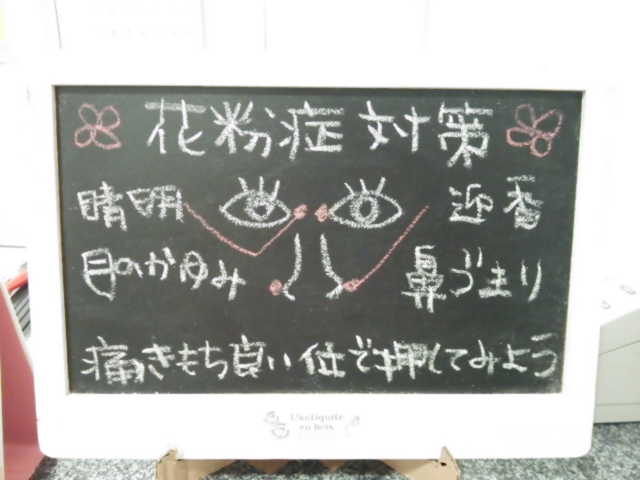 花粉症対策
晴明 迎香
目のかゆみ 鼻づまり
痛きもち良い位で押してみよう
L'antiquite
en bois